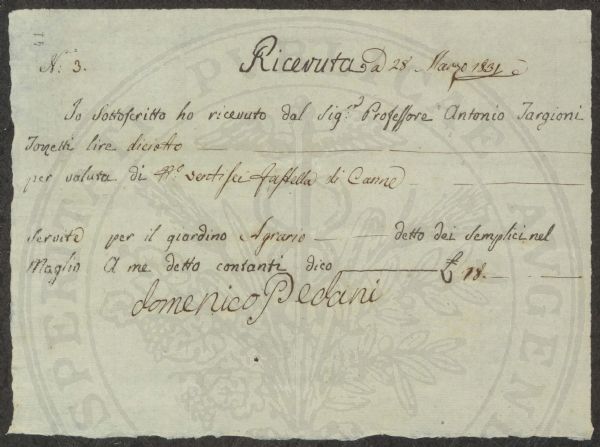 41
N: 3. Ricevuta A dì 28 Marzo 1831
Io Sottoscritto ho ricevuto dal Sig.r Professore Antonio Targioni
Tozzetti lire diciotto
per valuta di N.o ventisei fastella di Canne
servite per il giardino Agrario detto dei semplici nel
Maglio A me detto contanti dico £ 18.
domenico Pedani